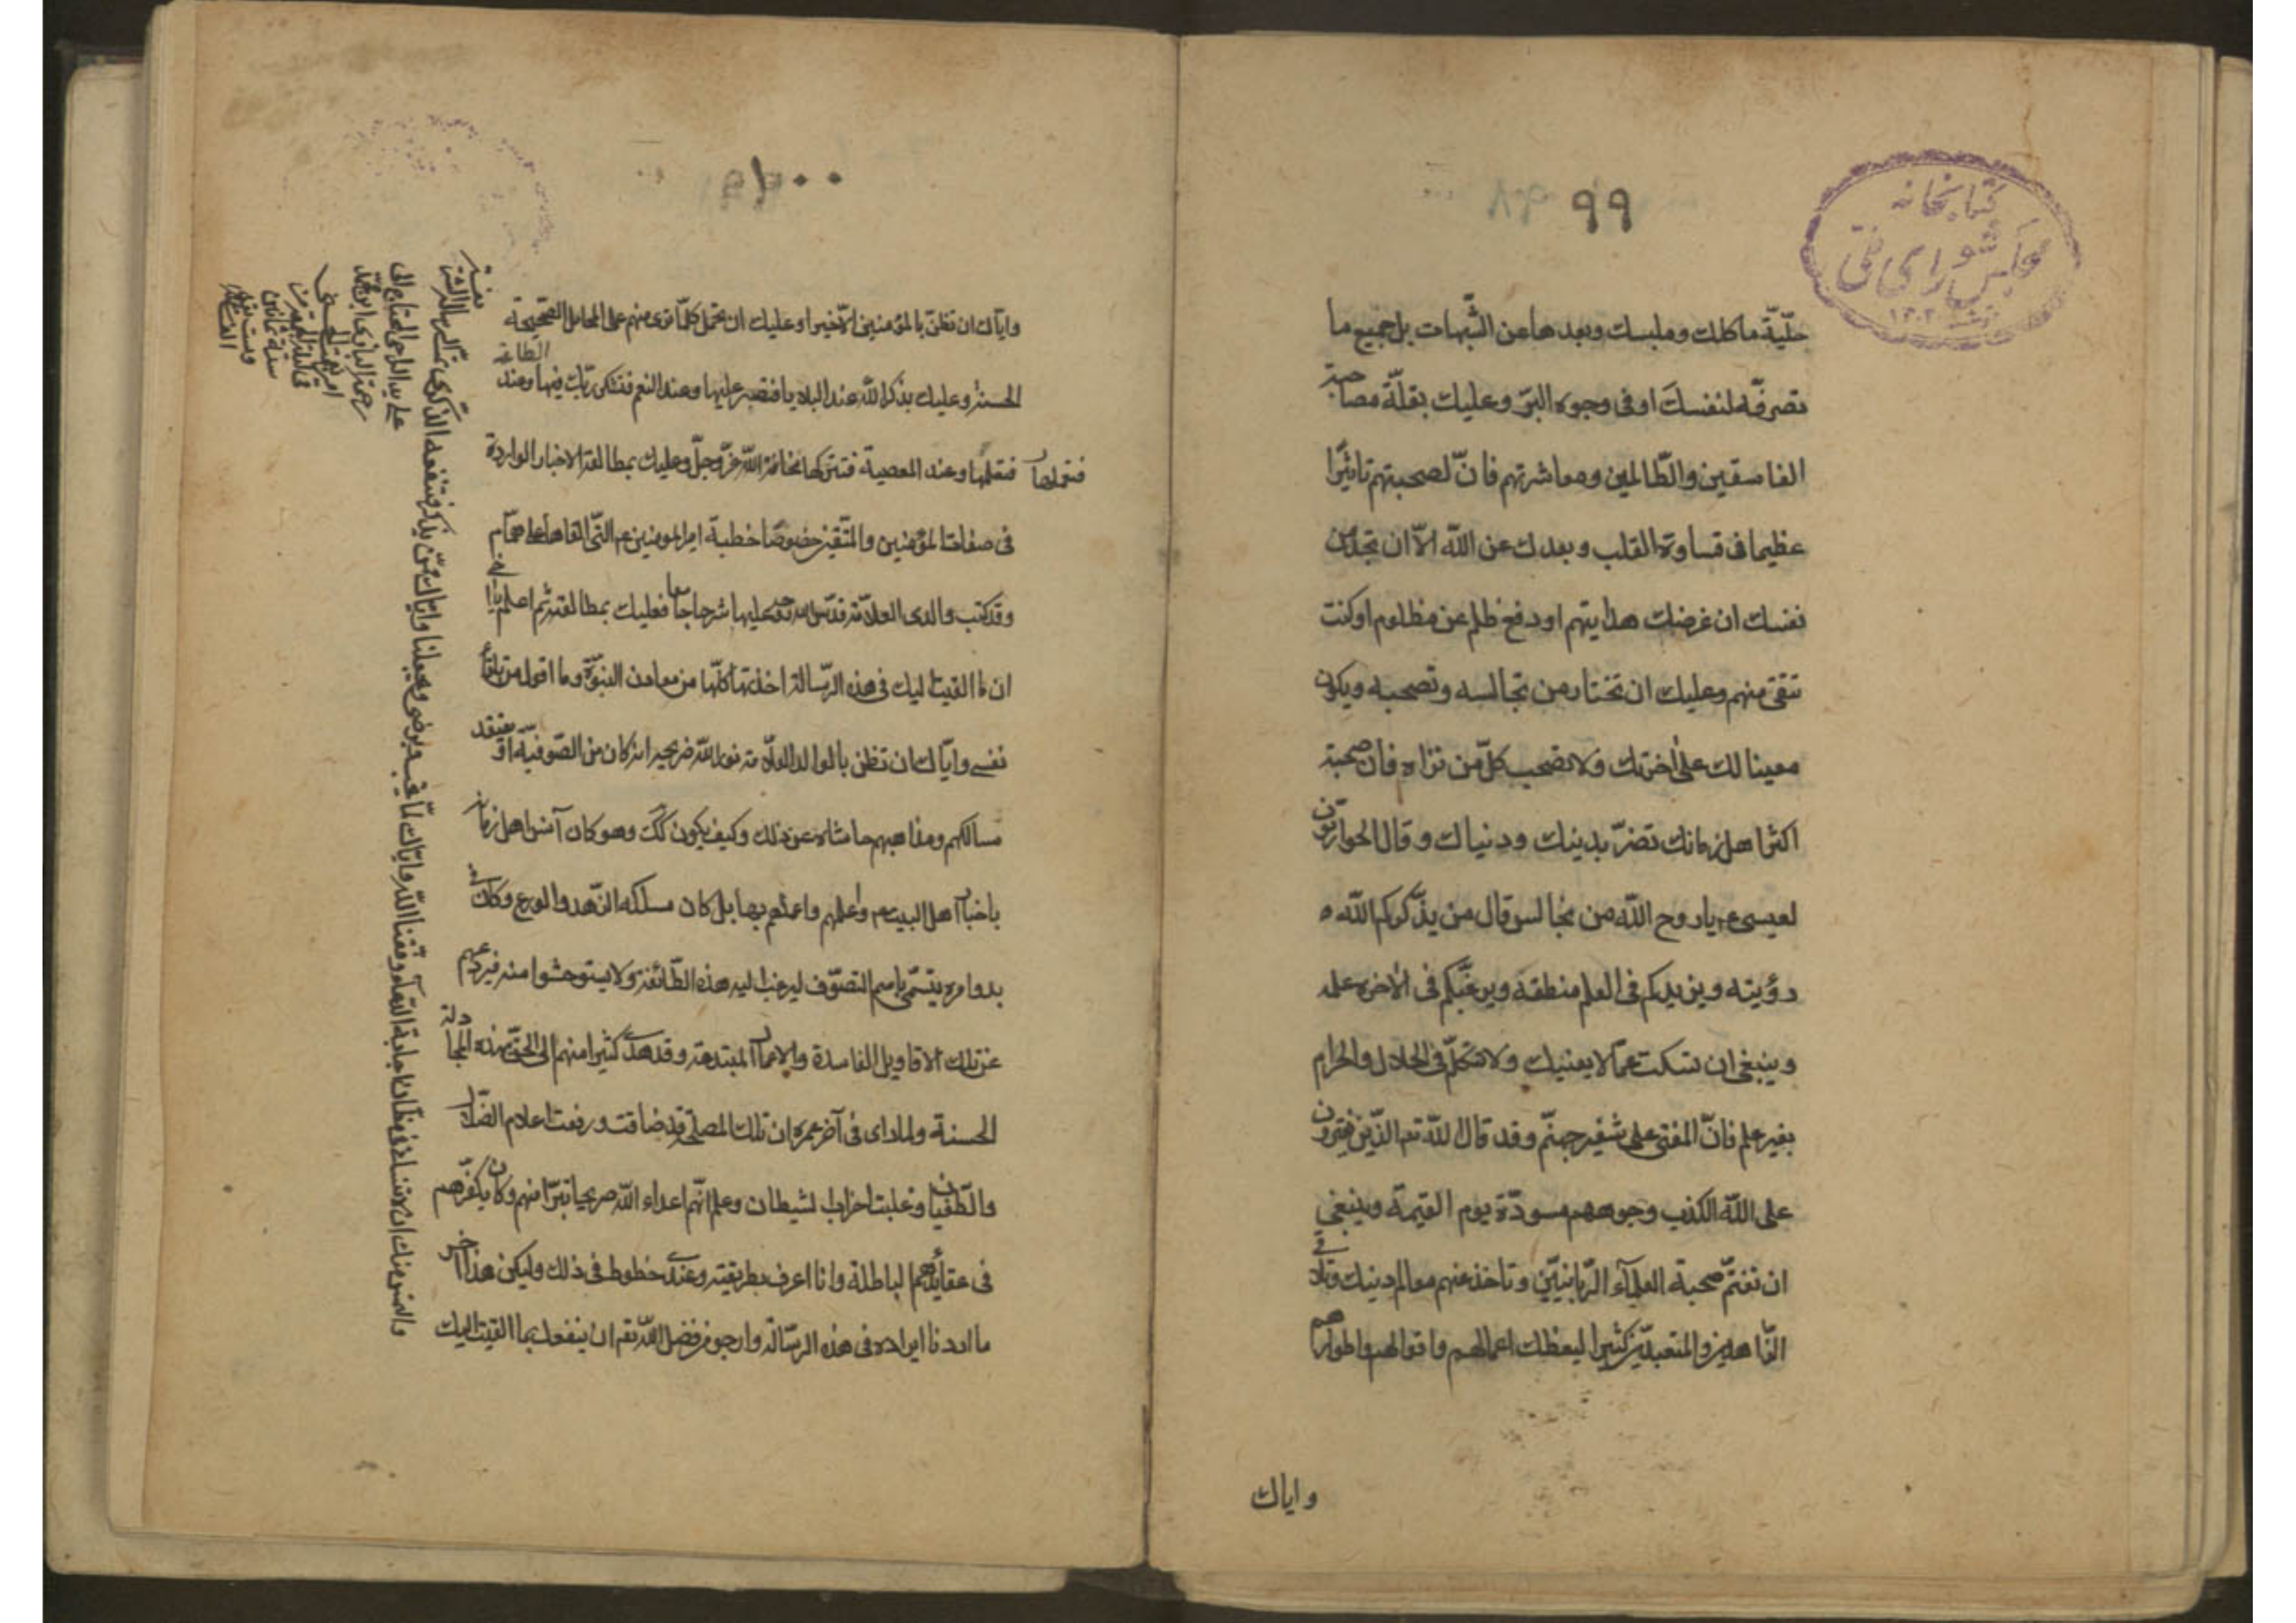 ٩٩
كتابخانه
مجلس شورای ملی
١٣٠٢
حلّيّة ماكلك وملبسك وبعدها عن الشّبهات بل جميع ما
تصرفه لنفسك او فى وجوه البرّ وعليك بقلّة مصاحبة
الفاسقين والظّالمين ومعاشرتهم فانّ لصحبتهم تاثيرا
عظيما فى قساوة القلب وبعدك عن اللّه الّا ان تجد من
نفسك ان غرضك هدايتهم او دفع ظلم عن مظلوم او كنت
تتقى منهم وعليك ان تختار من تجالسه وتصحبه ويكون
معينا لك على اخرتك ولا تصحب كلّ من تراه فان صحبة
اكثر اهل زمانك تضرّ بدينك ودنياك وقال الحواريّون
لعيسى ع يا روح اللّه من نجالس قال من يذّكركم اللّه
رؤيته ويزيدكم فى العلم منطقه ويرغّبكم فى الاخرة عمله
وينبغى ان تسكت عمّا لا يعنيك ولا تتكلّم فى الحلال والحرام
بغير علم فانّ المفتى على شفير جهنّم وقد قال اللّه تع الّذين يفترون
على اللّه الكذب وجوههم مسودّة يوم القيمة وينبغى
ان تغتنم صحبة العلمآء الرّبانيّين وتاخذ عنهم معالم دينك وتلاقى
الزّاهدين والمتعبدّين كثيرا ليعظك اعمالهم واقوالهم واطوارهم
واياك
١٠٠
واياك ان تظن بالمؤمنين الّا خيرا وعليك ان تحمل كلّما ترى منهم على المحامل الصّحيحة
الحسنة وعليك بذكر اللّه عند البلايا فتصبر عليها وعند النعم فتشكر ربّك فيها وعند الطاعة
فتعملها وعند المعصية فتتركها مخافة اللّه عزّ وجلّ وعليك بمطالعة الاخبار الواردة
فى صفات المؤمنين والمتّقين خصوصّا خطبة امير المومنين ع التّى القاها على همّام
وقد كتب والدى العلاّمة قدّس اللّه روحه عليها شرحا جامعا فعليك بمطالعته ثم اعلم يا اخى
ان ما القيت اليك فى هذه الرّسالة اخذتها كلّها من معادن النبوّة وما اقول من تلقاء
نفسى وايّاك ان تظن بالوالد العلّامة نور اللّه ضريحه انه كان من الصّوفيّة او يعتقد
مسالكهم ومذاهبهم حاشاه عن ذلك وكيف يكون كك وهو كان آنس اهل زمانه
باخبار اهل البيت ع واعلمهم واعملهم بها بل كان مسلكه الزّهد والورع وكان فى
بدو امره يتسّمى باسم التصوّف ليرغب اليه هذه الطّائفة ولا يستوحشوا منه فيردعهم
عن تلك الاقاويل الفاسدة والاعمال المبتدعة وقد هدى كثيرا منهم الى الحق بهذه المجادلة
الحسنة ولما راى فى آخر عمره ان تلك المصلحة قد ضاقت ورفعت اعلام الضّلال
والطّغيان وغلبت احزاب الشيطان وعلم انّهم اعداء اللّه صريحا تبرّا منهم وكان يكفرّهم
فى عقايدهم الباطلة وانا اعرف بطريقته وعندى خطوطه فى ذلك وليكن هذا آخر
ما اردنا ايراده فى هذه الرسّالة وارجو من فضل اللّه تع ان ينفعك بما القيت اليك
والتمس منك ان لا تنسانى فى مظانّ اجابة الدّعاء وفقنا اللّه وايّاك لما يحب ويرضى ويجعلنا وايّاك ممّن يذكر فتنفعه الذكرى
على يد الراجى المحتاج الى
رحمة البارى ابن محمد
سنة ثمانين